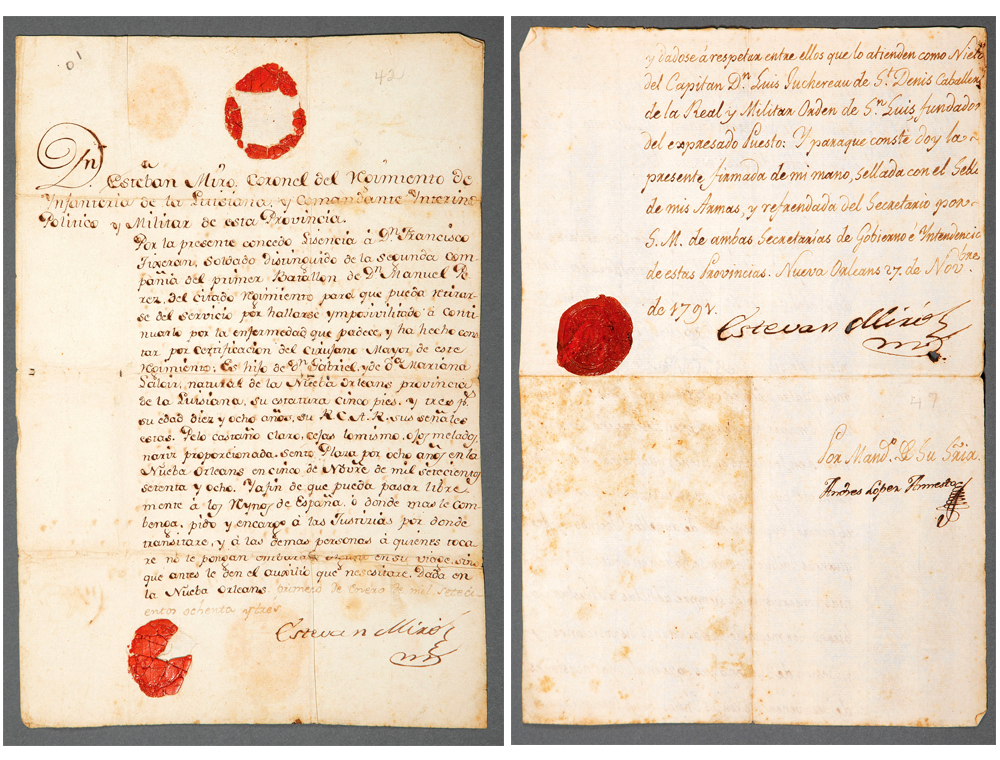 42
Dn
Esteban Miró, Coronel del Regimiento de
Infanteria de la Luisiana, y Comandante Interino
Politico y Militar de esta Provincia.
Por la presente concedo Lisencia á Dn. Francisco
soldado distinguido de la segunda Com-
pañia del primer Batallon, de Dn. Manuel Pe-
rez, del citado Regimiento para que pueda retirar-
se del servicio por hallarse ymposivilitado à conti-
nuarlo por la enfermedad que padece, y ha hecho cons-
tar por certificacion del Cirujano Mayor de este
Regimiento: Es hijo de Dn. Gabriel, y de Da. Mariana
natural de la Nueba Orleans provincia
de la Luisiana, su estatura cinco pies, y tres
su edad diez y ocho años, su R.C.A.R. sus señales
estas. Pelo castaño claro, cejas lo mismo, ojos melados,
nariz proporcionada. Sento Plaza por ocho años en la
Nueba Orleans en cinco de Novre de mil setecientos
setenta y ocho. Yafin de que pueda pasar libre
mente á los Reynos de España, ò donde mas le Com-
benga, pido y encargo á las Justicias por donde
transitare, y á las demas personas á quienes toca-
re no le pongan embarazo en su viage, sino
que antes le den el auxilio que nesesitare. Dada en
la Nueba Orleans primero de Enero de mil seteci-
entos ochenta y tres
Estevan Miró
y dadose á respetar entre ellos que lo atienden como Nieto
del Capitan Dn. Luis Juchereau de St. Denis Caballero
de la Real y Militar Orden de Sn. Luis, fundador
del expresado Puesto: Y paraque conste doy la
presente firmada de mi mano, sellada con el Sello
de mis Armas, y refrendada del Secretario por
S.M. de ambas Secretarías de Gobierno é Yntendencia
de estas Provincias. Nueva Orleans 27. de Novbre
de 1791.
Estevan Miró
47
Por Mando. de Su Sria.
Andres López Armesto